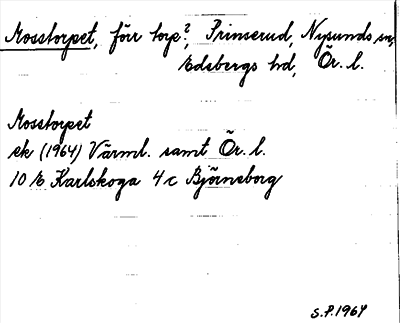 Mosstorpet, förr torp?, Prinserud, Nysunds sn,
Edsbergs hd, Ör. l.
Mosstorpet
ek (1964) Värml. samt Ör. l.
10 E Karlskoga 4 c Björneborg
S.P. 1964